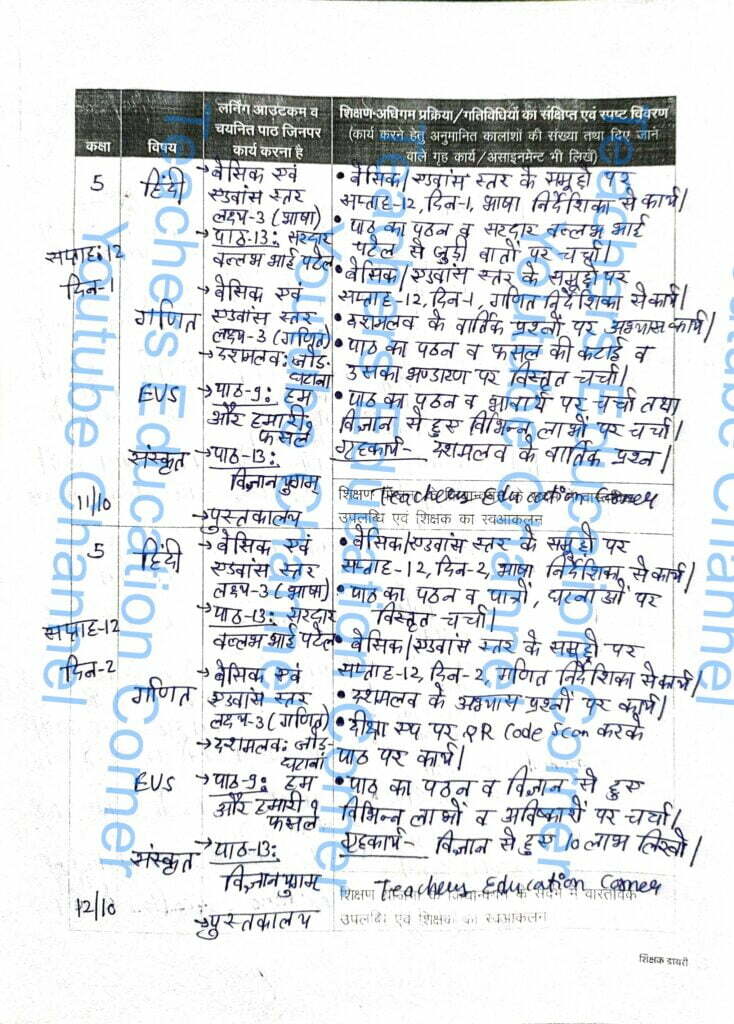 कक्षा
विषय
लर्निंग आउटकम व
चयनित पाठ जिनपर
कार्य करना है
शिक्षण-अधिगम प्रक्रिया/गतिविधियों का संक्षिप्त एवं स्पष्ट विवरण
(कार्य करने हेतु अनुमानित कालांशों की संख्या तथा दिए जाने
वाले गृह कार्य/असाइनमेन्ट भी लिखें)
5
सप्ताह:12
दिन-1
11/10
हिंदी
गणित
EVS
संस्कृत
→बेसिक एवं
एडवांस स्तर
लक्ष्य-3 (भाषा)
→पाठ-13: सरदार
वल्लभ भाई पटेल
→बेसिक एवं
एडवांस स्तर
लक्ष्य-3 (गणित)
→दशमलव: जोड़-
घटाना
→पाठ-9: हम
और हमारी
फसलें
→पाठ-13:
विज्ञानयुगम्
→पुस्तकालय
• बेसिक/एडवांस स्तर के समूहों पर
सप्ताह-12, दिन-1, भाषा निर्देशिका से कार्य।
• पाठ का पठन व सरदार वल्लभ भाई
पटेल से जुड़ी बातों पर चर्चा।
• बेसिक/एडवांस स्तर के समूहों पर
सप्ताह-12, दिन-1, गणित निर्देशिका से कार्य।
• दशमलव के वार्तिक प्रश्नों पर अभ्यास कार्य।
• पाठ का पठन व फसल की कटाई व
उसका भण्डारण पर विस्तृत चर्चा।
• पाठ का पठन व भावार्थ पर चर्चा तथा
विज्ञान से हुए विभिन्न लाभों पर चर्चा।
गृहकार्य- दशमलव के वार्तिक प्रश्न।
शिक्षण
Teachers Education Corner
उपलब्धि एवं शिक्षक का स्वआकलन
5
सप्ताह-12
दिन-2
12/10
हिंदी
गणित
EVS
संस्कृत
→बेसिक एवं
एडवांस स्तर
लक्ष्य-3 (भाषा)
→पाठ-13: सरदार
वल्लभ भाई पटेल
→बेसिक एवं
एडवांस स्तर
लक्ष्य-3 (गणित)
→दशमलव: जोड़-
घटाना
→पाठ-9: हम
और हमारी
फसलें
→पाठ-13:
विज्ञानयुगम्
→पुस्तकालय
• बेसिक/एडवांस स्तर के समूहों पर
सप्ताह-12, दिन-2, भाषा निर्देशिका से कार्य।
• पाठ का पठन व पात्रों, घटनाओं पर
विस्तृत चर्चा।
• बेसिक/एडवांस स्तर के समूहों पर
सप्ताह-12, दिन-2, गणित निर्देशिका से कार्य।
• दशमलव के अभ्यास प्रश्नों पर कार्य।
• दीक्षा एप पर QR Code Scan करके
पाठ पर कार्य।
• पाठ का पठन व विज्ञान से हुए
विभिन्न लाभों व अविष्कारों पर चर्चा।
गृहकार्य- विज्ञान से हुए 10 लाभ लिखो।
शिक्षण के संदर्भ में वास्तविक
Teachers Education Corner
उपलब्धि एवं शिक्षक का स्वआकलन
शिक्षक डायरी
Teachers Education Corner
Youtube Channel
Teachers Education Corner
Youtube Channel